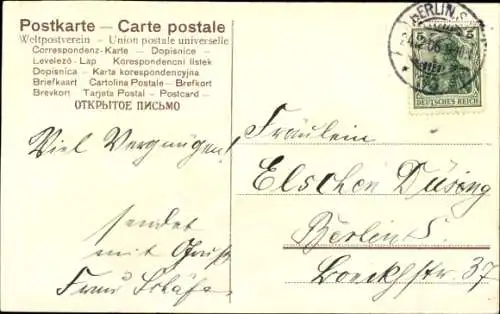 Postkarte — Carte postale
Weltpostverein - Union postale universelle
Correspondenz-Karte — Dopisnice -
Levelező-Lap — Korespondencni listek
Dopisnica - Karta korespondencyjna
Briefkaart - Cartolina Postale - Brefkort
Brevkort - Tarjeta Postal - Postcard —
ОТКРЫТОЕ ПИСЬМО
BERLIN S.
5 5
DEUTSCHES REICH
Viel Vergnügen!
sendet
mit Gruß
Frau
Fräulein
Elschen Düsing
Berlin S.
Boeckhstr. 37